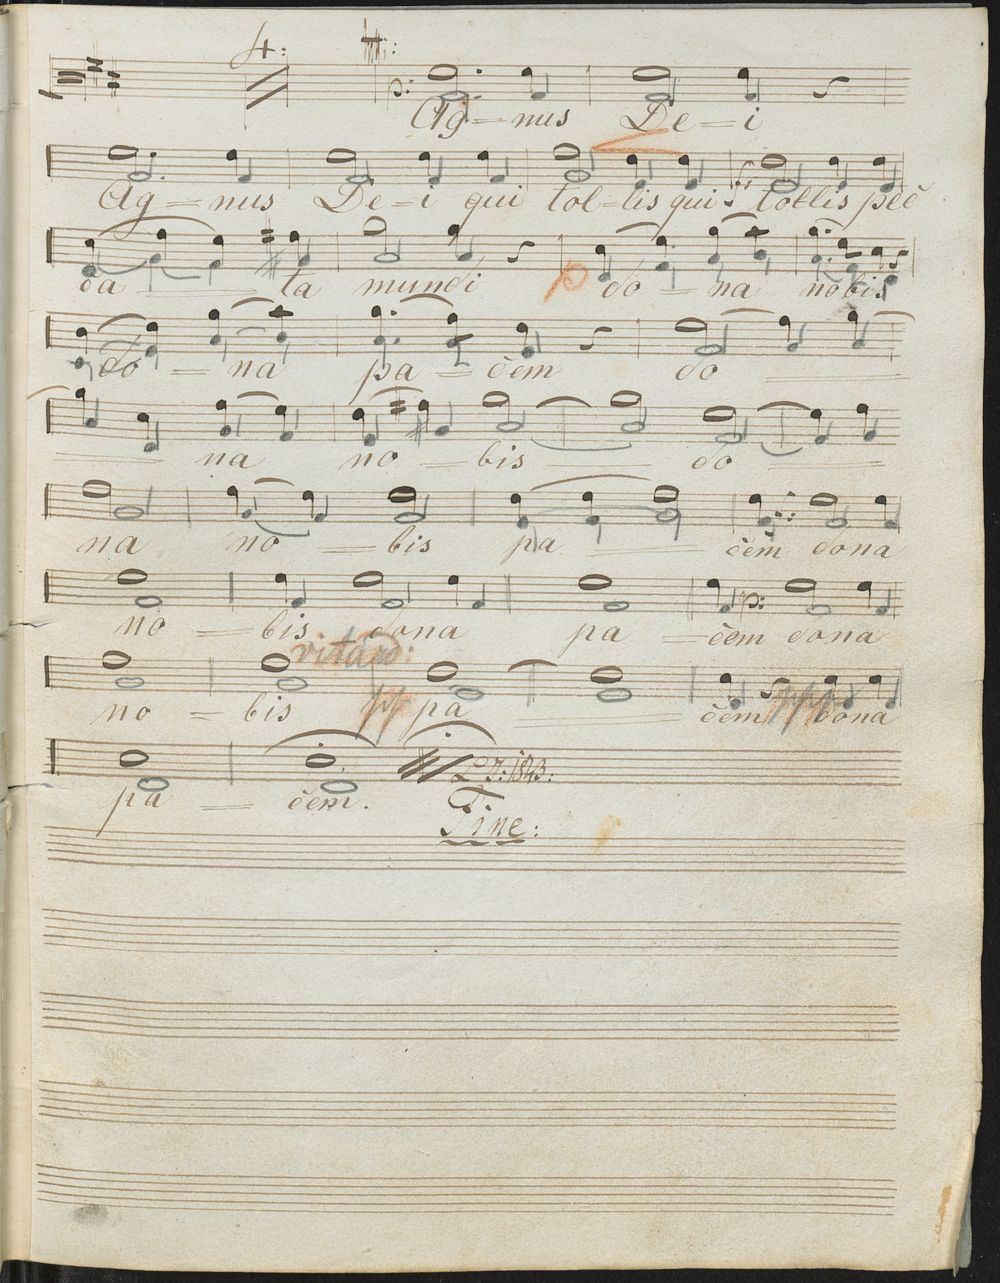 4:
Ag=nus De=i
Ag=nus De=i qui tol=lis qui tollis pec̆
ca ta mundi p do=na nobis
do=na pa=c̆em do
na no=bis do
na no=bis pa c̆em dona
no=bis dona pa=c̆em dona
ritard:
no=bis pp pa c̆em ppp dona
1843:
pa=c̆em.
Fine: